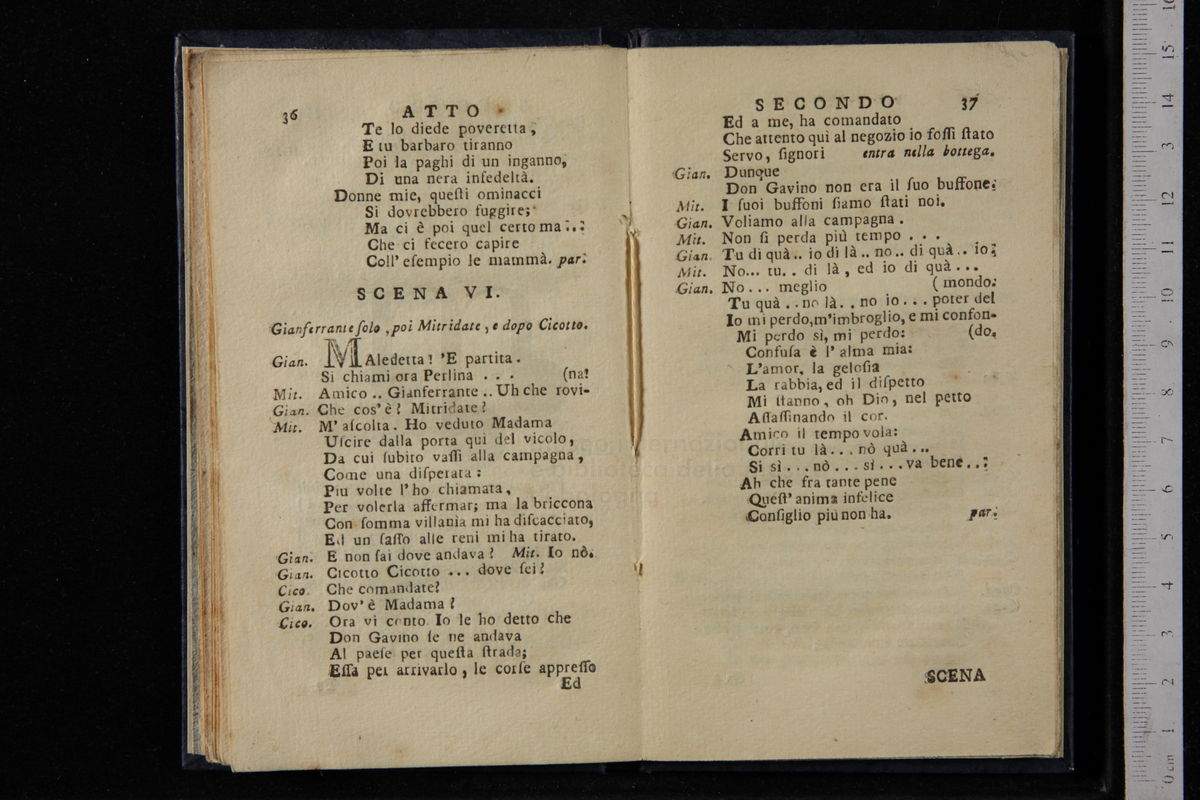 36 ATTO
Te lo diede poveretta,
E tu barbaro tiranno
Poi la paghi di un inganno,
Di una nera infedeltà.
Donne mie, queſti ominacci
Si dovrebbero fuggire;
Ma ci è poi quel certo ma...
Che ci fecero capire
Coll' eſempio le mammà. par.
SCENA VI.
Gianferrante ſolo, poi Mitridate, e dopo Cicotto.
Gian. MAledetta! 'E partita.
Si chiami ora Perlina . . . (na!
Mit. Amico .. Gianferrante .. Uh che rovi-
Gian. Che cos' è? Mitridate?
Mit. M' aſcolta. Ho veduto Madama
Uſcire dalla porta qui del vicolo,
Da cui ſubito vaſſi alla campagna,
Come una diſperata:
Piu volte l' ho chiamata,
Per volerla affermar; ma la briccona
Con ſomma villanìa mi ha diſcacciato,
Ed un ſaſſo alle reni mi ha tirato.
Gian. E non ſai dove andava? Mit. Io nò.
Gian. Cicotto Cicotto ... dove ſei?
Cico. Che comandate?
Gian. Dov' è Madama?
Cico. Ora vi conto. Io le ho detto che
Don Gavino ſe ne andava
Al paeſe per queſta ſtrada;
Eſſa per arrivarlo, le corſe appreſſo
Ed
SECONDO 37
Ed a me, ha comandato
Che attento qui al negozio io foſſi ſtato
Servo, ſignori entra nella bottega.
Gian. Dunque
Don Gavino non era il ſuo buffone.
Mit. I ſuoi buffoni ſiamo ſtati noi.
Gian. Voliamo alla campagna.
Mit. Non ſi perda più tempo . . .
Gian. Tu di quà.. io di là .. no .. di quà .. io;
Mit. No... tu.. di là, ed io di quà ...
Gian. No... meglio (mondo.
Tu quà .. no là.. no io... poter del
Io mi perdo, m'imbroglio, e mi confon-
Mi perdo sì, mi perdo: (do.
Confuſa è l' alma mia:
L'amor, la geloſia
La rabbia, ed il diſpetto
Mi ſtanno, oh Dio, nel petto
Aſſaſſinando il cor.
Amico il tempo vola:
Corri tu là... nò quà...
Si sì... nò... sì... va bene...
Ah che fra tante pene
Queſt' anima infelice
Conſiglio più non ha. par.
SCENA